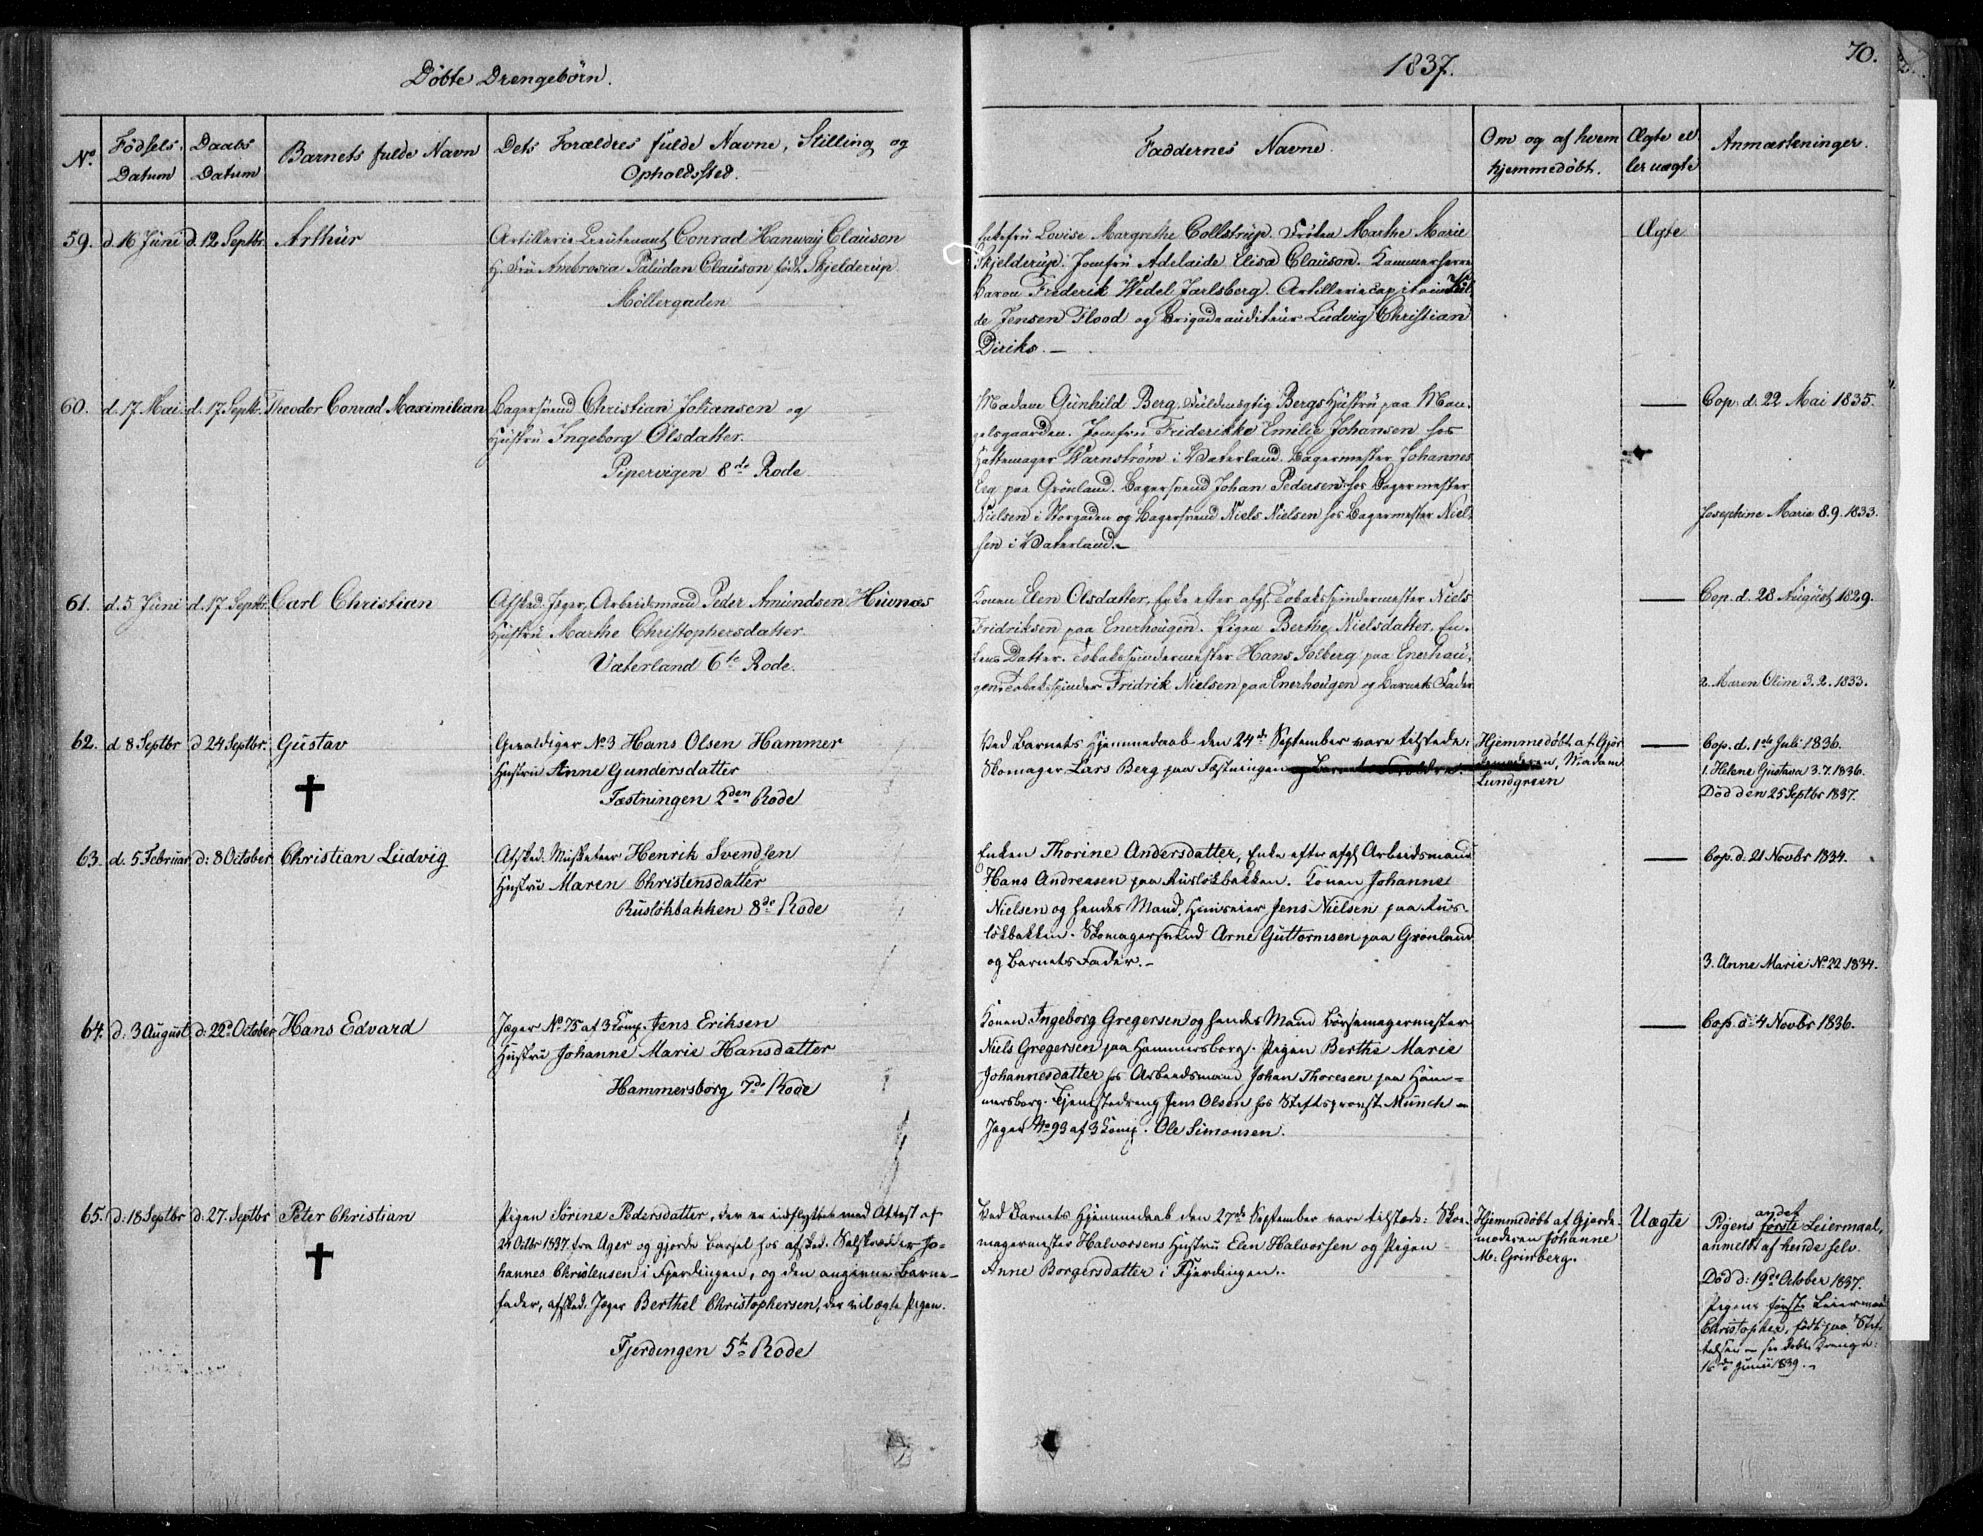 Döbte Drengebörn.
1837.
70.
No.
Födsels Datum
Daabs Datum
Barnets fulde Navn
Dets Forældres fulde Navne, Stilling og
Opholdssted.
Faddernes Navne.
Om og af hvem
hjemmedøbt.
Ægte el
ler uægte
Anmærkninger.
59. d. 16 Juni d. 12 Septbr. Arthur
Artillerie Lieutenant Conrad Hanway Clauson
H. Fru Ambrosia Paludan Clauson födt Skjelderup
Möllergaden
Enkefru Lovise Margrethe Collstrup. Fröken Marthe Marie
Skjelderup. Jomfru Adelaide Elisa Clauson. Kammerherre
Baron Frederik Wedel Jarlsberg. Artilleriecapitain
de Jensen Flood og Brigadeauditeur Ludvig Christian
Diriks. —
Ægte
60. d. 17 Mai. d. 17 Septbr. Theodor Conrad Maximilian
Bagersvend Christian Johansen og
Hustru Ingeborg Olsdatter.
Pipervigen 8de Rode
Madam Gunhild Berg, Fuldmægtig Bergs Hustru paa Man-
gelsgaarden. Jomfru Friderikke Emilie Johansen hos
Hattemager Warnström i Vaterland. Bagermester Johannes
Eeg paa Grönland. Bagersvend Johan Pedersen hos Bagermester
Nielsen i Storgaden og Bagersvend Niels Nielsen hos Bagermester Niel-
sen i Vaterland. —
—
Cop. d. 22 Mai 1835.
Josephine Marie 8.9.1833.
61. d. 5 Juni d. 17 Septbr. Carl Christian
Afsked. Jæger, Arbeidsmand Peder Amundsen Huvnæs
Hustru Marthe Christophersdatter.
Vaterland 6te Rode.
Konen Elen Olsdatter, Enke efter afg. Tobaksspindermester Niels
Fridriksen paa Enerhougen. Pigen Berthe Nielsdatter, En-
kens Datter. Tobaksspindermester Hans Solberg paa Enerhou-
gen. Tobaksspinder Fridrik Nielsen paa Enerhougen og Barnets Fader
—
Cop. d. 28 August 1829.
2. Maren Oline 3.2.1833.
62. d 8 Septbr d 24 Septbr. Gustav
Gevaldiger No 3 Hans Olsen Hammer
Hustru Anne Gundersdatter
Fæstningen 2den Rode
Ved Barnets Hjemmedaab den 24de September vare tilstede:
Skomager Lars Berg paa Fæstningen og Barnets Forældre.
Hjemmedöbt af Gjor
demoderen, Madam
Lundgreen
—
Cop. d. 1ste Juli 1836.
1. Helene Gustava 3.7.1836.
Död den 25 Septbr 1837.
63. d. 5 Februar d: 8 October Christian Ludvig
Afsked. Musketeer Henrik Svendsen
Hustru Maren Christensdatter
Ruslökbakken 8de Rode
Enken Thorine Andersdatter, Enke efter afg. Arbeidsmand
Hans Andreasen paa Ruslökbakken. Konen Johanne
Nielsen og hendes Mand, Huuseier Jens Nielsen paa Rus-
lökbakken. Skomagersvend Arne Guttormsen paa Grönland
og Barnets Fader. —
—
Cop. d. 21 Novbr 1834.
3. Anne Marie No 22. 1834.
64. d: 3 August d: 22de October Hans Edvard
Jæger No 75 af 3 Komp. Jens Eriksen
Hustru Johanne Marie Hansdatter
Hammersborg 7de Rode
Konen Ingeborg Gregersen og hendes Mand Börsemagermester
Niels Gregersen paa Hammersborg. Pigen Berthe Marie
Johannesdatter hos Arbeidsmand Johan Thoresen paa Ham-
mersborg. Tjenestedreng Jens Olsen hos Stiftsprovst Munch —
Jæger No 93 af 3 Komp. Ole Simonsen.
—
Cop. d: 4 Novbr 1836.
65. d: 18 Septbr d: 27. Septbr Peter Christian
Pigen Sörine Pedersdatter, der er indflyttet med Attest af
24 Octbr 1837 fra Ager og gjorde Barsel hos afsked. Skrædder Jo-
hannes Christensen i Fjerdingen, og den angivne Barne-
fader, afsked. Jæger Berthel Christophersen, der vil ægte Pigen.
Fjerdingen 5te Rode
Ved Barnets Hjemmedaab den 27de September vare tilstede: Sko-
magermester Halvorsens Hustru Elen Halvorsen og Pigen
Anne Borgersdatter i Fjerdingen.
Hjemmedöbt af Gjorde-
moderen Johanne
M. Grinberg.
Uægte
andet
Pigens förste Leiermaal,
anmeldt af hende selv.
Död d: 19de October 1837.
Pigens förste Leiermaal
Christopher, födt paa Stif-
telsen — see döbte Drenge
16de Junii 1839. —